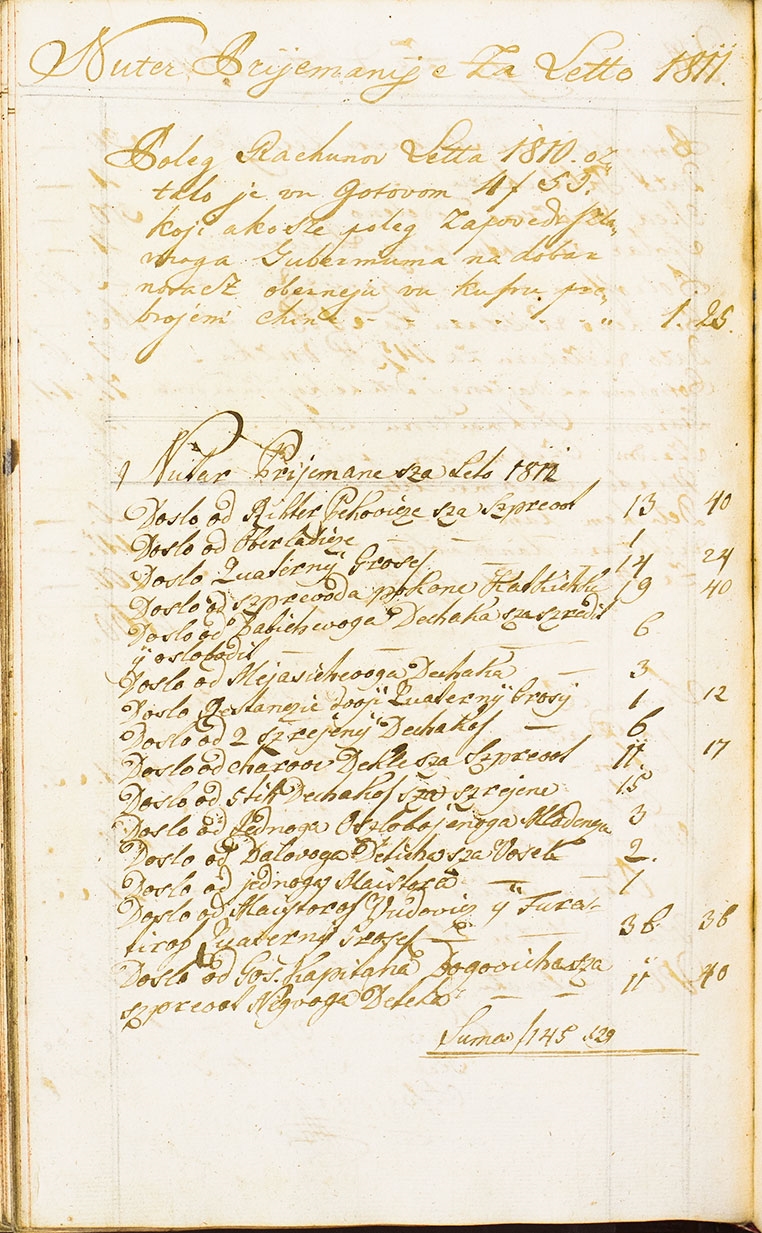 Nuter Prijemanije Za Letto 1811.
Poleg Rachunov Letta 1810. oz„
talo je vu Gotovom 4 f 59.
koji akosze poleg Zapovedi
Gubermuma na dobar
novacz oberneju vu kufru pre„
brojeni chine - - „ 1. 25.
Nutar Prijemane sza Leto 1812
Doslo od Rihter Pehovicze sza szprevod 13 40
Doslo od Oberladicze — — 1
Doslo Quaternÿ Grosef — 14 24
Doslo od szprevoda pokone 19 40
Doslo od Babichevoga Dechaka sza szredil
ÿ oslobodil — — — — 6
Doslo od Mejasichevoga Dechaka — 3
Doslo Quaternÿ Grosÿ 1 12
Doslo od 2 szrejenÿ Dechakof — 6
Doslo od Dekle sza Szprevod 11 17
Doslo od 5tih Dechakof sza szrejene 15
Doslo od Jednoga Oszlobojenoga Mladencza 3
Doslo od Deticha sza 2.
Doslo od jednoga Maistora — — 1
Doslo od Maistorof Vudovicz ÿ Fura-
tirof Quaternÿ Grosef — — 36 36
Doslo od Gos. Kapitana Bogovicha sza
szprevod Negvoga Deteta — — 11 40
Suma f 145 x 29